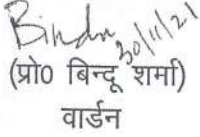 Bindu 30/11/21
(प्रो0 बिन्दू शर्मा)
वार्डन